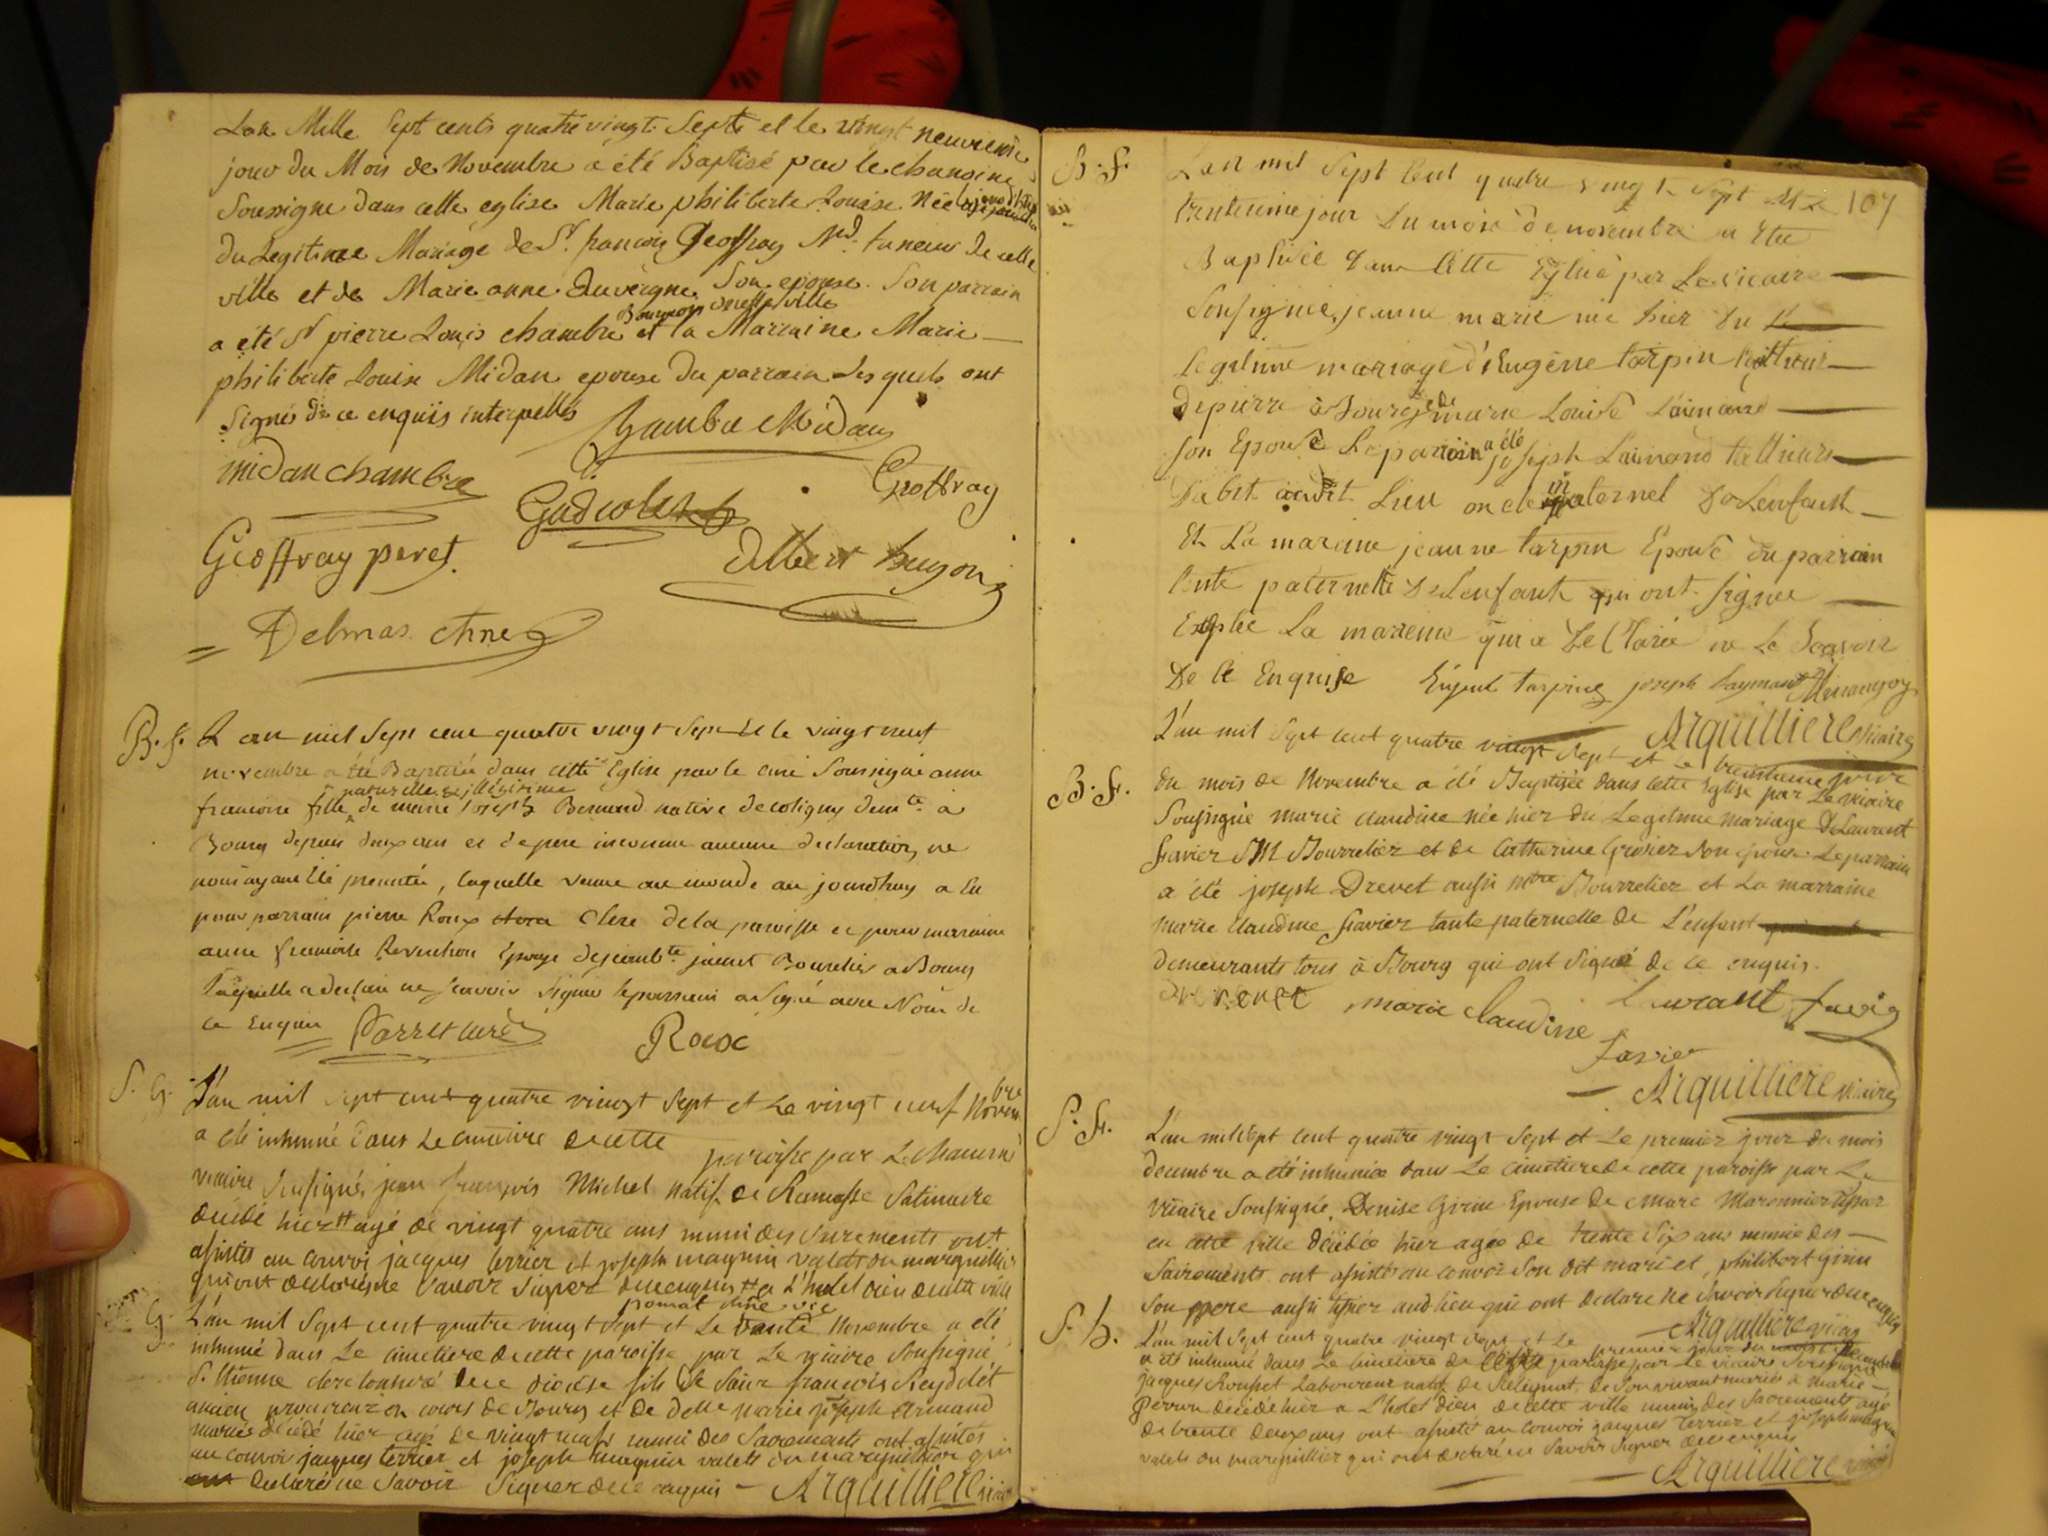 Lan Mille Sept cents quatre vingt Sept et le vingt neuvieme
jour du Mois de Novembre a été Baptisé par le chanoine
Soussigne dans cette eglise Marie philiberte Louise Née
du Legitime Mariage de Sr. francois Geoffray Md. taneur de cette
ville et de Marie anne Duvergne Son epouse. Son parrain
a été Sr pierre Louis chambre Bourgeois en cette ville et la Marraine Marie
philiberte Louise Midan epouse du parrain Lesquels ont
Signés de ce enquis interpellés
Chambre Midan
midan chambre
Geoffray
Geoffray peret
Albert hugon
Delmas chne
B. f. L an mil Sept cent quatre vingt Sept Et le vingt neuf
novembre a été Baptisée dans cette Eglise par le curé Soussigné anne
francoise fille naturelle et illégitime de marie Joseph Bernard native de coligny demte. à
Bourg depuis deux ans et de pere inconnu aucune declaration ne
nous ayant été presentée, laquelle venue au monde au jourdhuy a Eu
pour parrain pierre Roux Clerc de la paroisse et pour marraine
anne francoise Revuchon Epouse de jacquet Bourelier a Bourg
laquelle a declaré ne scavoir Signer le parrain a Signé avec Nous de
ce Enquis
Parret curé
Roux
S. G. L'an mil sept cent quatre vingt sept et Le vingt neuf Novembre
a été inhumé dans Le cimetiere de cette paroisse par Le chanoine
vicaire Soussigné, jean françois Michel natif de Ramasse
decédé hier agé de vingt quatre ans muni des Sacrements ont
assistés au convoi jacques terrier et joseph magnin valets du marguillier
qui ont declaré ne Savoir Signer de ce enquis a L'hotel dieu de cette ville
G. L'an mil Sept cent quatre vingt Sept et Le trente Novembre a été
inhumé dans Le cimetiere de cette paroisse par Le vicaire Soussigné
clerc tonsuré de ce diocèse fils de Sieur françois Reydelét
ancien procureur en cours de Bourg et de delle marie joseph armand
mariés décédé hier agé de vingt neuf muni des Sacrements ont assistés
au convoi jacques terrier et joseph magnin valets du marguillier qui
ont declaré ne Savoir Signer de ce enquis — Arquilliere vicaire
107
B. F. L'an mil Sept Cent quatre vingt Sept et Le
trentieme jour Du mois de novembre a Eté
Baptisée dans Cette Eglise par Le vicaire
Sousignée, jeanne marie née hier du
Legitime mariage d'Eugène tarpin
de pierre à Bourg et de marie Louise Laimand
son Epouse Le parrain a été joseph Laimand tallieur
au dit Lieu oncle maternel De Lenfant
Et La mareine jeanne tarpin Epouse du parrain
tente paternelle De Lenfant qui ont Signée
Exepté La mareine qui a Declarée ne Le Scavoir
De ce Enquise
Eugene tarpin joseph Laymand
Arquilliere vicaire
B. F. L'an mil Sept cent quatre vingt Sept et Le trentieme jour
du mois de Novembre a été Baptisée dans cette Eglise par Le vicaire
Soussigné marie claudine née hier du Legitime mariage De Laurent
favier Bourrelier et de Catherine Son epouse Le parrain
a été joseph Drevet aussi mtre Bourrelier et La marraine
marie Claudine favier tante paternelle de L'enfant
demeurants tous à Bourg qui ont Signé de ce enquis.
Drevet marie Claudine favier
Laurant favier
— Arquilliere vicaire
S. F. L'an mil Sept cent quatre vingt Sept et Le premier jour du mois
decembre a été inhumée dans Le cimetiere de cette paroisse par Le
vicaire Soussigné, Denise Girin Epouse de Marc Maronnier
en cette ville décédée hier agée de trente Six ans munie des
Sacrements ont assistés au convoi Son dit mari et philibert Girin
Son pere aussi audit lieu qui ont declaré ne Savoir Signer de ce enquis
— Arquilliere vicaire
S. h. L'an mil Sept cent quatre vingt Sept et Le premier jour du mois decembre
a été inhumé dans Le Cimetiere de cette paroisse par Le vicaire Soussigné
jacques Rousset Laboureur natif de de Son vivant marié à marie
perrin décédé hier a L'hotel dieu de cette ville muni des Sacrements agé
de trente deux ans ont assisté au convoi jacques terrier et joseph magnin
valets du marguillier qui ont declaré ne Savoir Signer de ce enquis
— Arquilliere vicaire